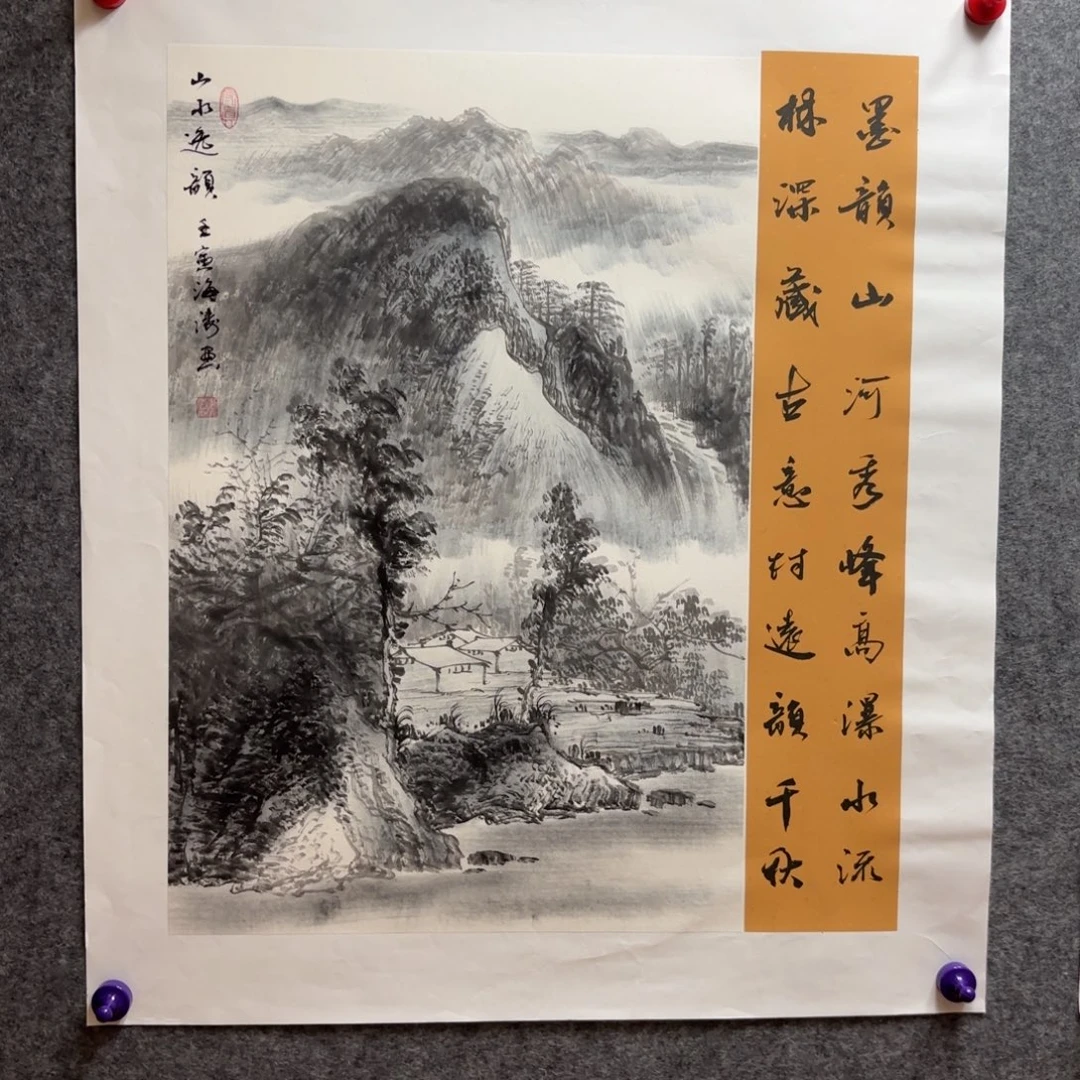 墨韻山河秀峰高瀑水流
林深藏古意村遠韻千秋
山水逸韻
壬寅海濤画